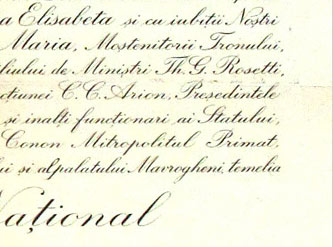 a Elisabeta și cu iubiții Noștri
Maria, Moștenitorii Tronului,
iliului de Miniștri Th. G. Rosetti,
cțiunei C. C. Arion, Președintele
și inalți funcționari ai Statului,
Conon Mitropolitul Primat.
ii și al palatului Mavrogheni, temelia
Național